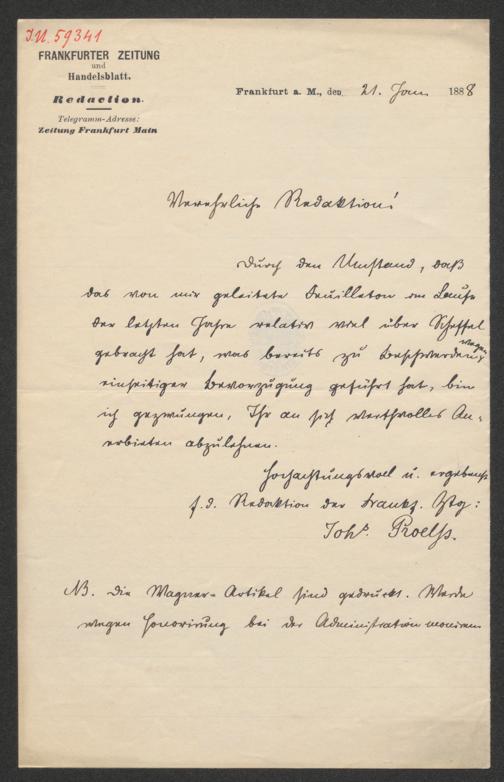 I.N. 59341
FRANKFURTER ZEITUNG
und
Handelsblatt.
Redaction.
Telegramm-Adresse:
Zeitung Frankfurt Main
Frankfurt a. M., den 21. Jan. 1888
Verehrliche Redaktion!
Durch den Umstand, daß
das von mir geleitete Feuilleton im Laufe
der letzten Jahre relativ viel über Scheffel
gebracht hat, was bereits zu Beschwerden wegen
einseitiger Bevorzugung geführt hat, bin
ich gezwungen, Ihr an sich werthvolles An-
erbieten abzulehnen.
Hochachtungsvoll u. ergebenst
f. d. Redaktion der Frankf. Ztg:
Johs. Proelss.
NB. Die Wagner-Artikel sind gedruckt. Werde
wegen Honorirung bei der Administration moniren